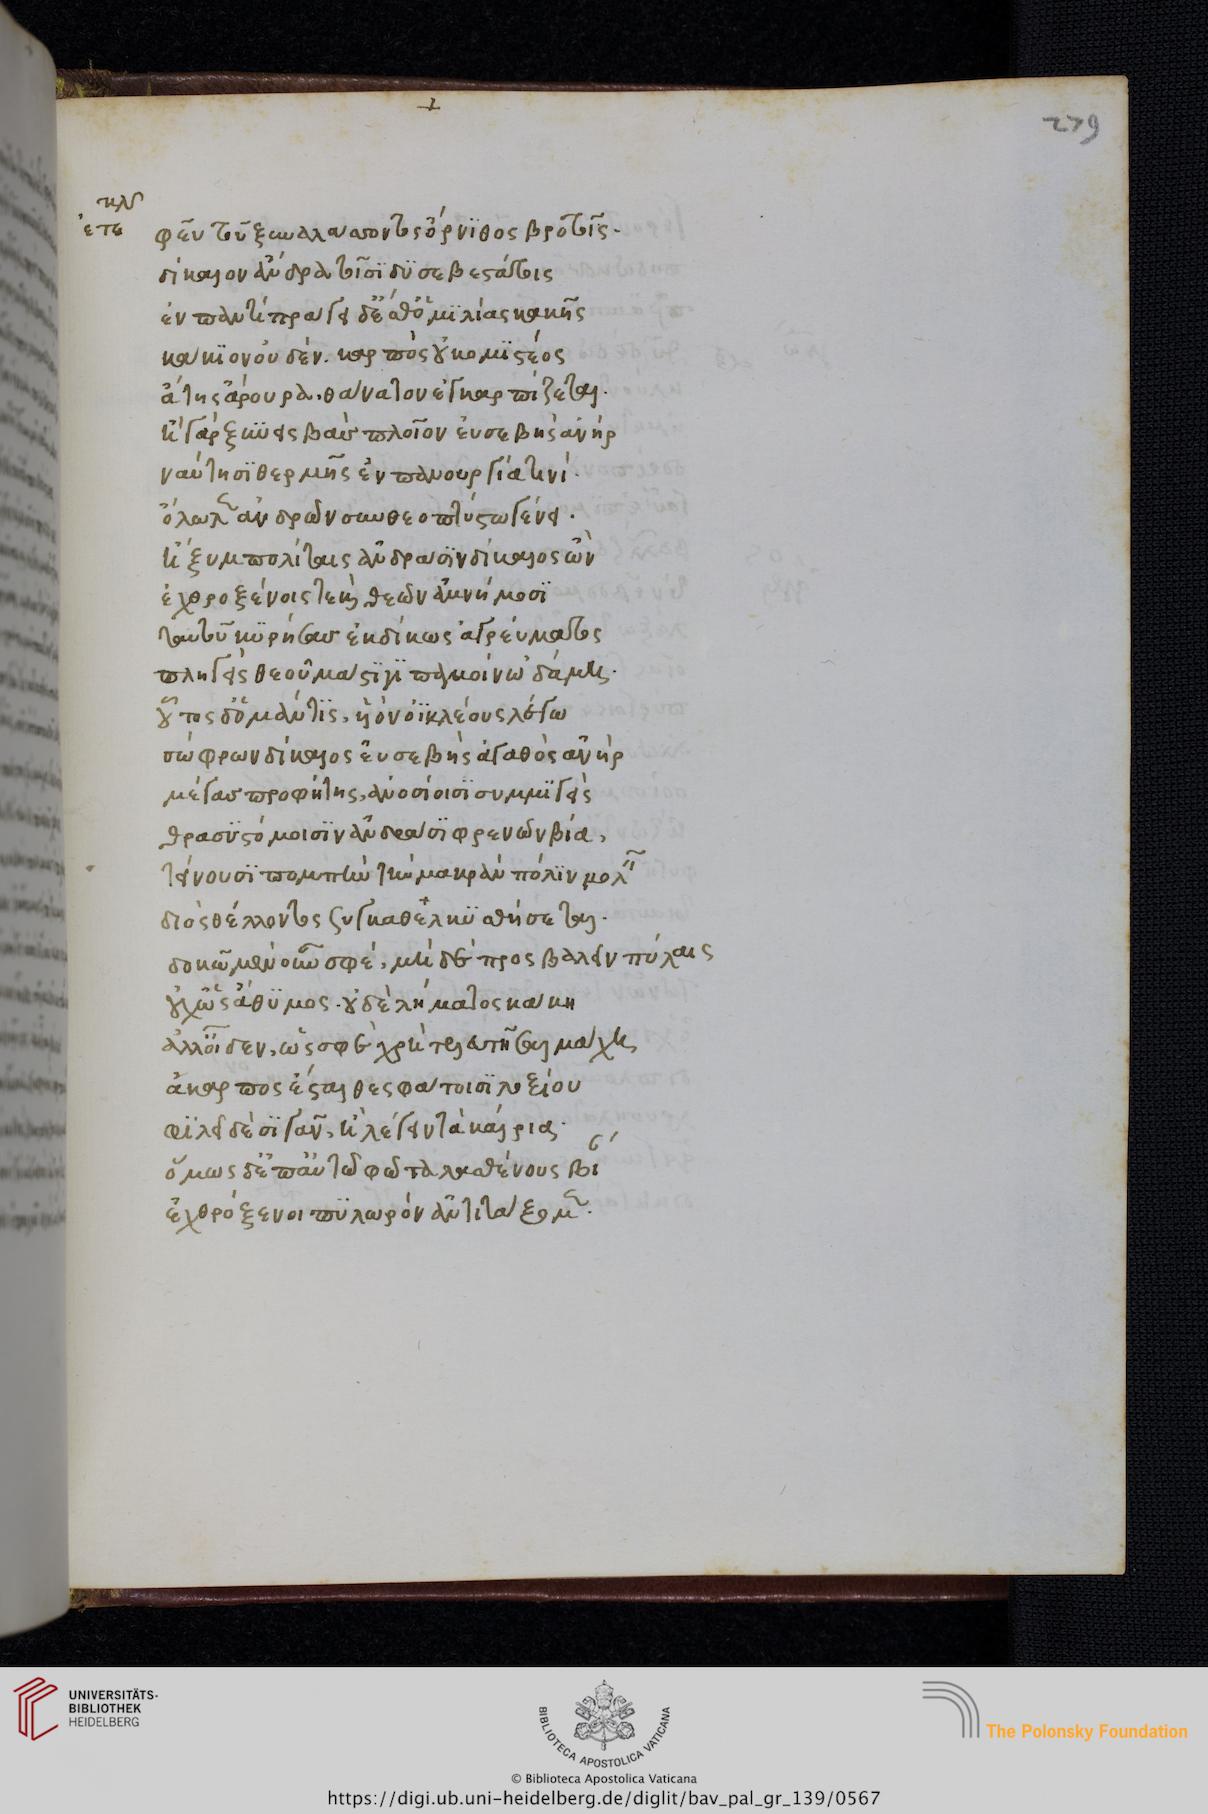 279
ἐτε κλ
φεῦ τοῦ ξυναλάσσοντος ὄρνιθος βροτοῖς.
δίκαιον ἄνδρα τοῖσι δυσσεβεστάτοις
ἐν παντὶ πράγει δ' ἔσθ' ὁμιλίας κακῆς
κάκιον οὐδέν. καρπὸς οὐ κομιστέος
ἄτης ἄρουρα. θάνατον ἐκκαρπίζεται.
ἢ γὰρ ξυνεισβὰς πλοῖον εὐσεβὴς ἀνὴρ
ναύτῃσι θερμοῖς ἐν πανουργίᾳ τινί.
ὄλωλεν ἀνδρῶν σὺν θεοπτύστῳ γένει.
ἢ ξὺμ πολίταις ἀνδράσιν δίκαιος ὢν
ἐχθροξένοις τε καὶ θεῶν ἀμνήμοσι
ταὐτοῦ κυρήσας ἐκδίκως ἀγρεύματος
πληγεὶς θεοῦ μάστιγι παγκοίνῳ δάμη.
οὗτος δ' ὁ μάντις, υἱὸν οἰκλέους λέγω
σώφρων δίκαιος εὐσεβὴς ἀγαθὸς ἀνὴρ
μέγας προφήτης, ἀνοσίοισι συμμιγεὶς
θρασυστόμοισιν ἀνδράσι φρενῶν βίᾳ,
τείνουσι πομπὴν τὴν μακρὰν πόλιν μολεῖν
διὸς θέλοντος ξυγκαθελκυσθήσεται.
δοκῶ μὲν οὖν σφέ, μηδὲ προσβαλεῖν πύλαις
οὐχ ὡς ἄθυμος. οὐδὲ λήματος κάκῃ
ἀλλ' οἶδεν, ὥς σφε χρὴ τελευτῆσαι μάχῃ,
εἰ καρπὸς ἔσται θεσφάτοισι λοξίου
φιλεῖ δὲ σιγᾶν, ἢ λέγειν τὰ καίρια.
ὅμως δ' ἐπ' αὐτῷ φῶτα λασθένους βίαν
ἐχθρόξενον πυλωρὸν ἀντιτάξομεν.
UNIVERSITÄTS-
BIBLIOTHEK
HEIDELBERG
BIBLIOTECA APOSTOLICA VATICANA
The Polonsky Foundation
© Biblioteca Apostolica Vaticana
https://digi.ub.uni-heidelberg.de/diglit/bav_pal_gr_139/0567